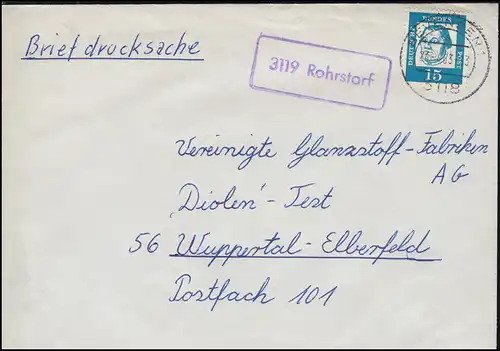 Briefdrucksache
3119 Rohrstorf
DEUTSCHE BUNDESPOST
15
3118
Vereinigte Glanzstoff-Fabriken
AG
'Diolen'-Test
56 Wuppertal-Elberfeld
Postfach 101